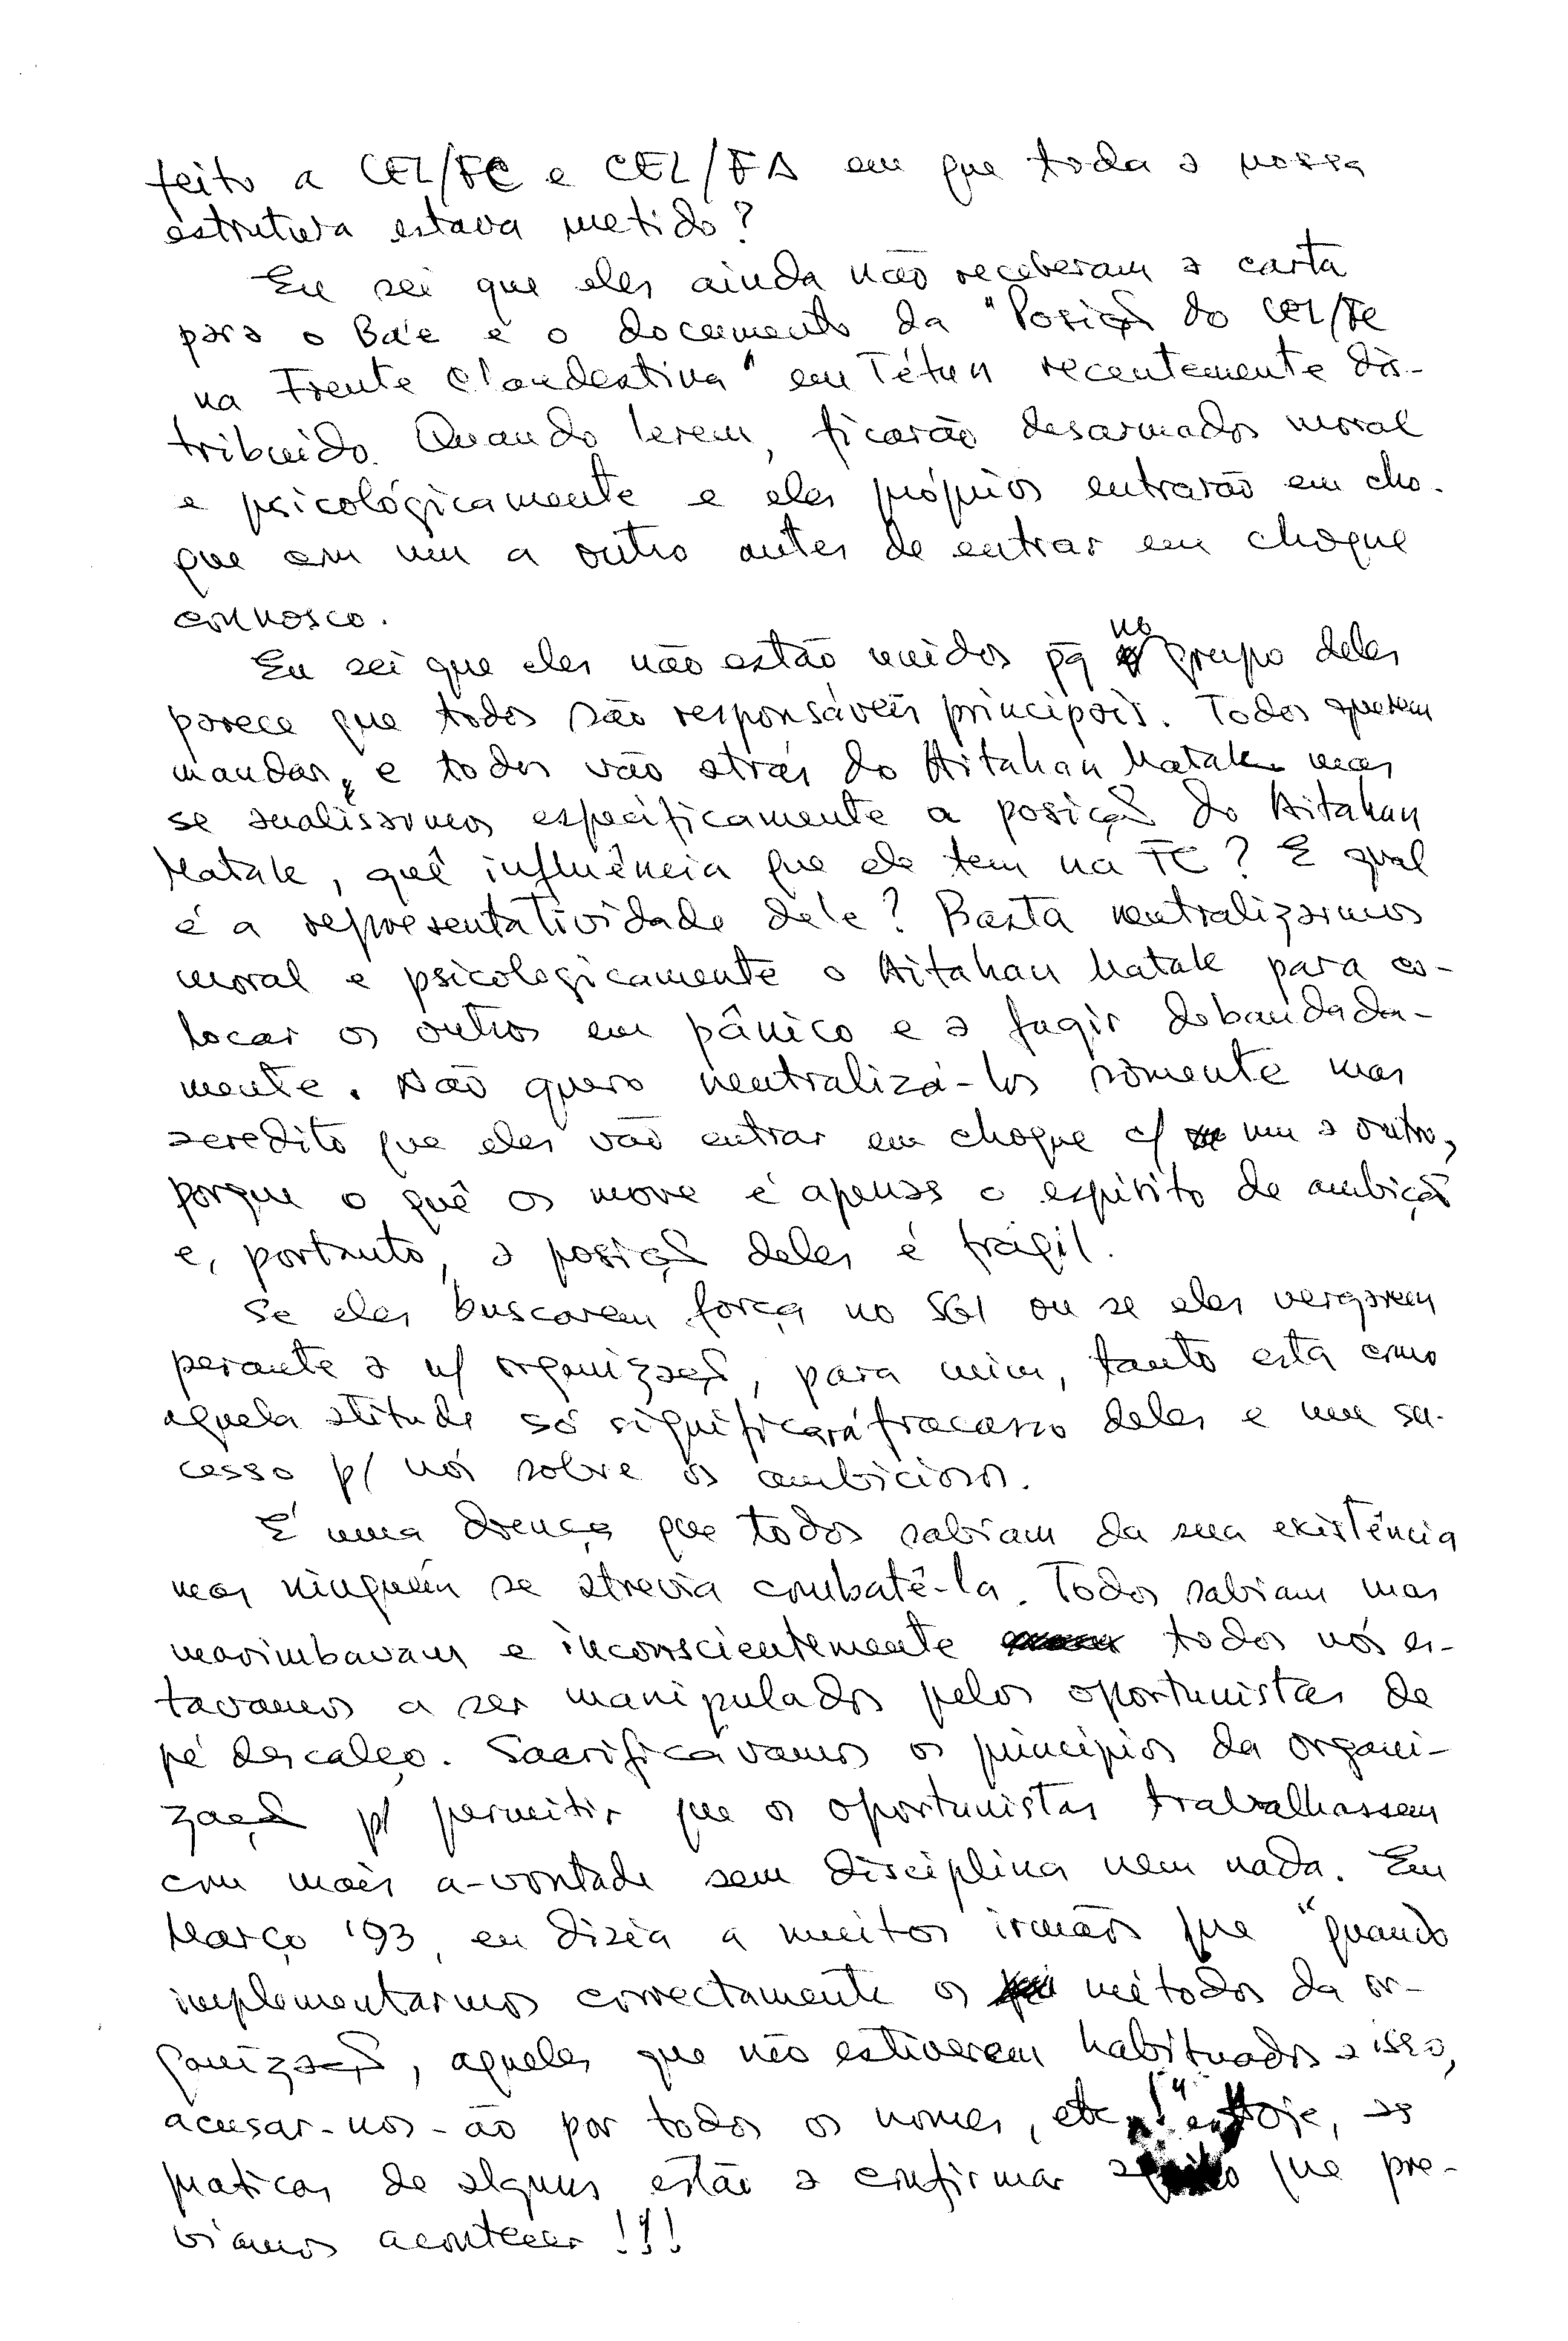 feito a CEL/FC e CEL/FA em que toda a nossa
estrutura estava metido?
Eu sei que eles ainda não receberam a carta
para o Ba'e e o documento da "Posição do CEL/FC
na Frente Clandestina" em Tétun recentemente dis-
tribuido. Quando lerem, ficarão desarmados moral
e psicológicamente e eles próprios entrarão em cho-
que com um a outro antes de entrar em choque
connosco.
Eu sei que eles não estão unidos pq no grupo deles
parece que todos são responsáveis principais. Todos querem
mandar, e todos vão atrás do Aitahan Matak mas
se analissarmos especificamente a posição do Aitahan
Matak, quê influência que ele tem na FC? E qual
é a representatividade dele? Basta neutralizarmos
moral e psicologicamente o Aitahan Matak para co-
locar os outros em pânico e a fugir debandada-
mente. Não quero neutralizá-los sòmente mas
acredito que eles vão entrar em choque c/ um a outro,
porque o quê os move é apenas o espírito de ambição
e, portanto, a posição deles é frágil.
Se eles buscarem força no SGI ou se eles vergarem
perante a n/ organização, para mim, tanto esta como
aquela atitude só significará fracasso deles e um su-
cesso p/ nós sobre os ambiciosos.
É uma doença que todos sabiam da sua existência
mas ninguém se atrevia combatê-la. Todos sabiam mas
marimbavam e inconscientemente todos nós es-
tavamos a ser manipulados pelos oportunistas de
pé descalço. Sacrificávamos os princípios da organi-
zação p/ permitir que os oportunistas trabalhassem
com mais a-vontade sem disciplina nem nada. Em
Março '93, eu dizia a muitos irmãos que "quando
implementarmos correctamente os métodos da or-
ganização, aqueles que não estiverem habituados a isso,
acusar-nos-ão por todos os nomes, etc.!" Hoje, as
praticas de alguns estão a confirmar aquilo que pre-
viamos acontecer!!!